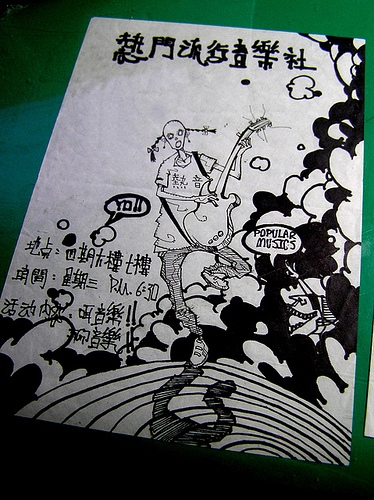 熱門流行音樂社
熱音
YO!!
POPULAR
MUSIC'S
地点：四期大樓七樓
時間：星期三 P.M. 6:30
活动内容：听音樂!!
音樂!!